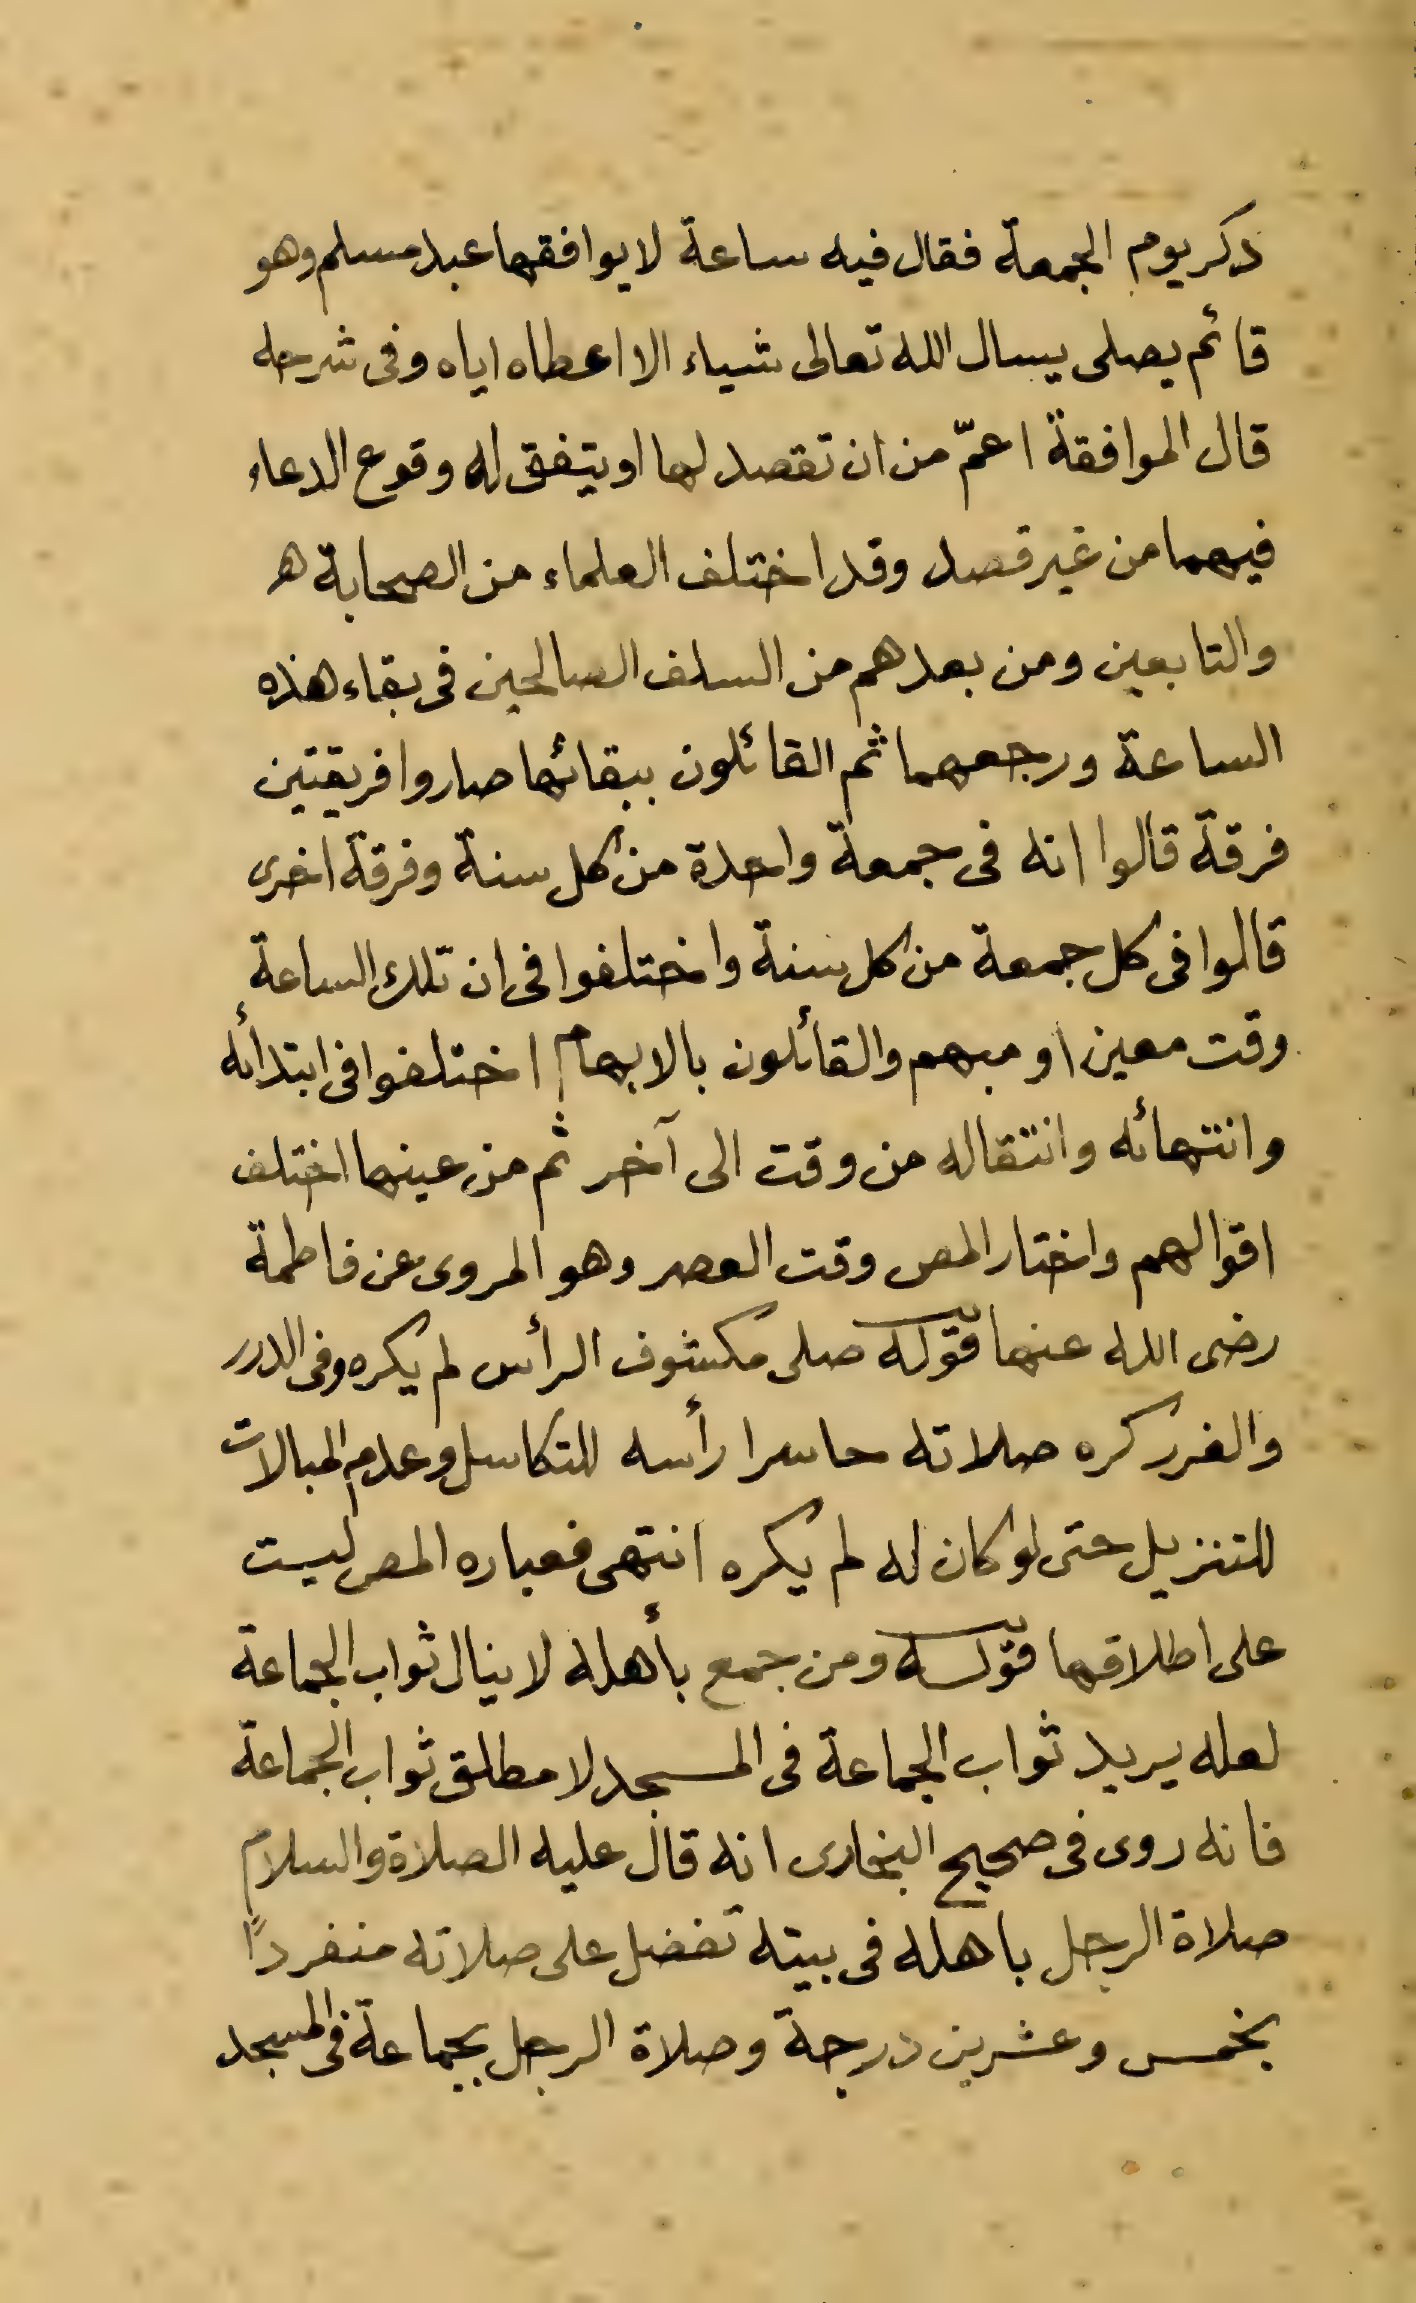 ذكر يوم الجمعة فقال فيه ساعة لا يوافقها عبد مسلم وهو
قائم يصلى يسال الله تعالى شياء الا اعطاه اياه وفى شرحه
قال الموافقة اعمّ من ان تقصد لها او يتفق له وقوع الدعاء
فيهما من غير قصد وقد اختلف العلماء من الصحابة ھ
والتابعين ومن بعدهم من السلف الصالحين فى بقاء هذه
الساعة ورجعهما ثم القائلون ببقائها صاروا فريقتين
فرقة قالوا انه فى جمعة واحدة من كل سنة وفرقة اخرى
قالوا فى كل جمعة من كل سنة واختلفوا فى ان تلك الساعة
وقت معين او مبهم والقائلون بالابهام اختلفوا فى ابتدائه
وانتهائه وانتقاله من وقت الى آخر ثم من عينها اختلف
اقوالهم واختار المص وقت العصر وهو المروى عن فاطمة
رضى الله عنها قوله صلى مكشوف الرأس لم يكره وفى الدرر
والغرر كره صلاته حاسرا رأسه للتكاسل وعدم المبالات
للتنزيل حتى لو كان له لم يكره انتهى فعباره المص ليست
على اطلاقها قوله ومن جمع بأهله لا ينال ثواب الجماعة
لعله يريد ثواب الجماعة فى المسجد لا مطلق ثواب الجماعة
فانه روى فى صحيح البخارى انه قال عليه الصلاة والسلام
صلاة الرجل باهله فى بيته تفضل على صلاته منفردًا
بخمس وعشرين درجة وصلاة الرجل بجماعة فى المسجد